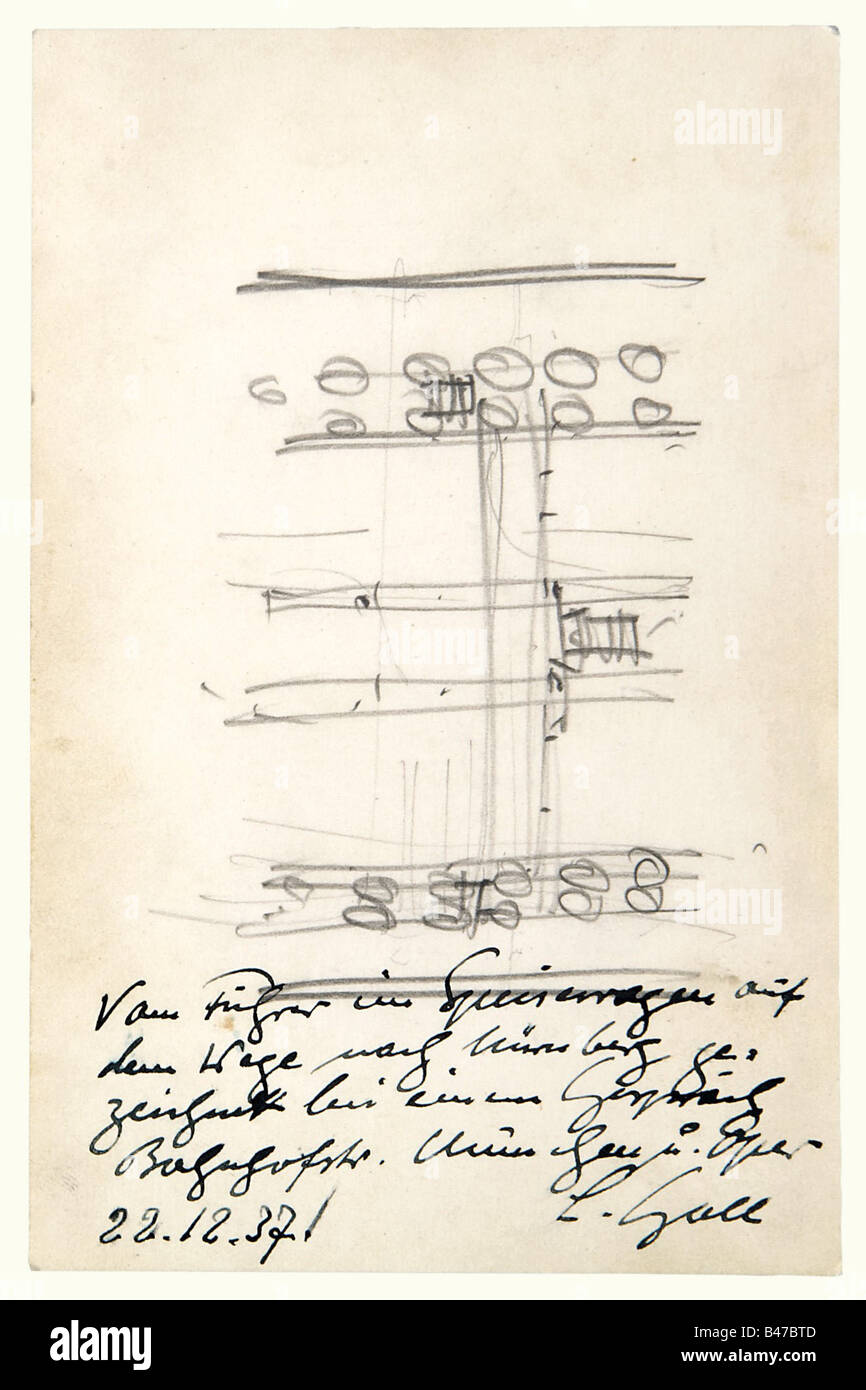 Vom Führer im Speisewagen auf
dem Wege nach Nürnberg ge-
zeichnet bei einem Gespräch
Bahnhofstr. München u. Oper
22.12.37! L. Gall
alamy
alamy
alamy
a
a
a
alamy
Image ID: B47BTD
www.alamy.com